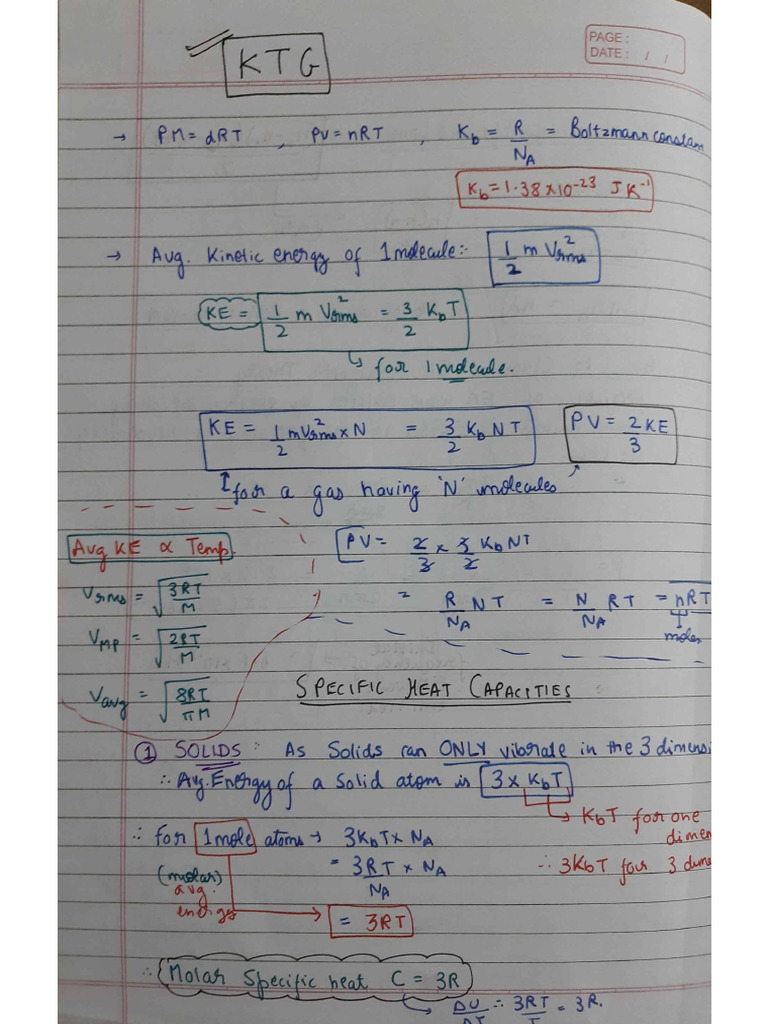 PAGE :
DATE : / /
KTG
→ PM = dRT , PV = nRT , Kb = R/NA = Boltzmann constan
Kb = 1.38 × 10^-23 J K^-1
→ Avg. Kinetic energy of 1 molecule:- 1/2 m Vrms^2
KE = 1/2 m Vrms^2 = 3/2 KbT
↳ for 1 molecule.
KE = 1/2 m Vrms^2 × N = 3/2 Kb NT PV = 2/3 KE
for a gas having 'N' molecules
Avg KE ∝ Temp
Vrms = √(3RT/M)
VMP = √(2RT/M)
Vavg = √(8RT/πM)
PV = 2/3 × 3/2 Kb NT
= R/NA NT = N/NA RT = nRT
moles
SPECIFIC HEAT CAPACITIES
① SOLIDS : As Solids can ONLY vibrate in the 3 dimensi
∴ Avg. Energy of a solid atom is 3 × KbT
↳ KbT for one
dimen
∴ 3KbT for 3 dime
∴ for 1 mole atoms → 3KbT × NA
= 3RT/NA × NA
= 3RT
(molar)
avg.
energy
∴ Molar Specific heat C = 3R
↳ DU/DT ∴ 3RT/T = 3R.